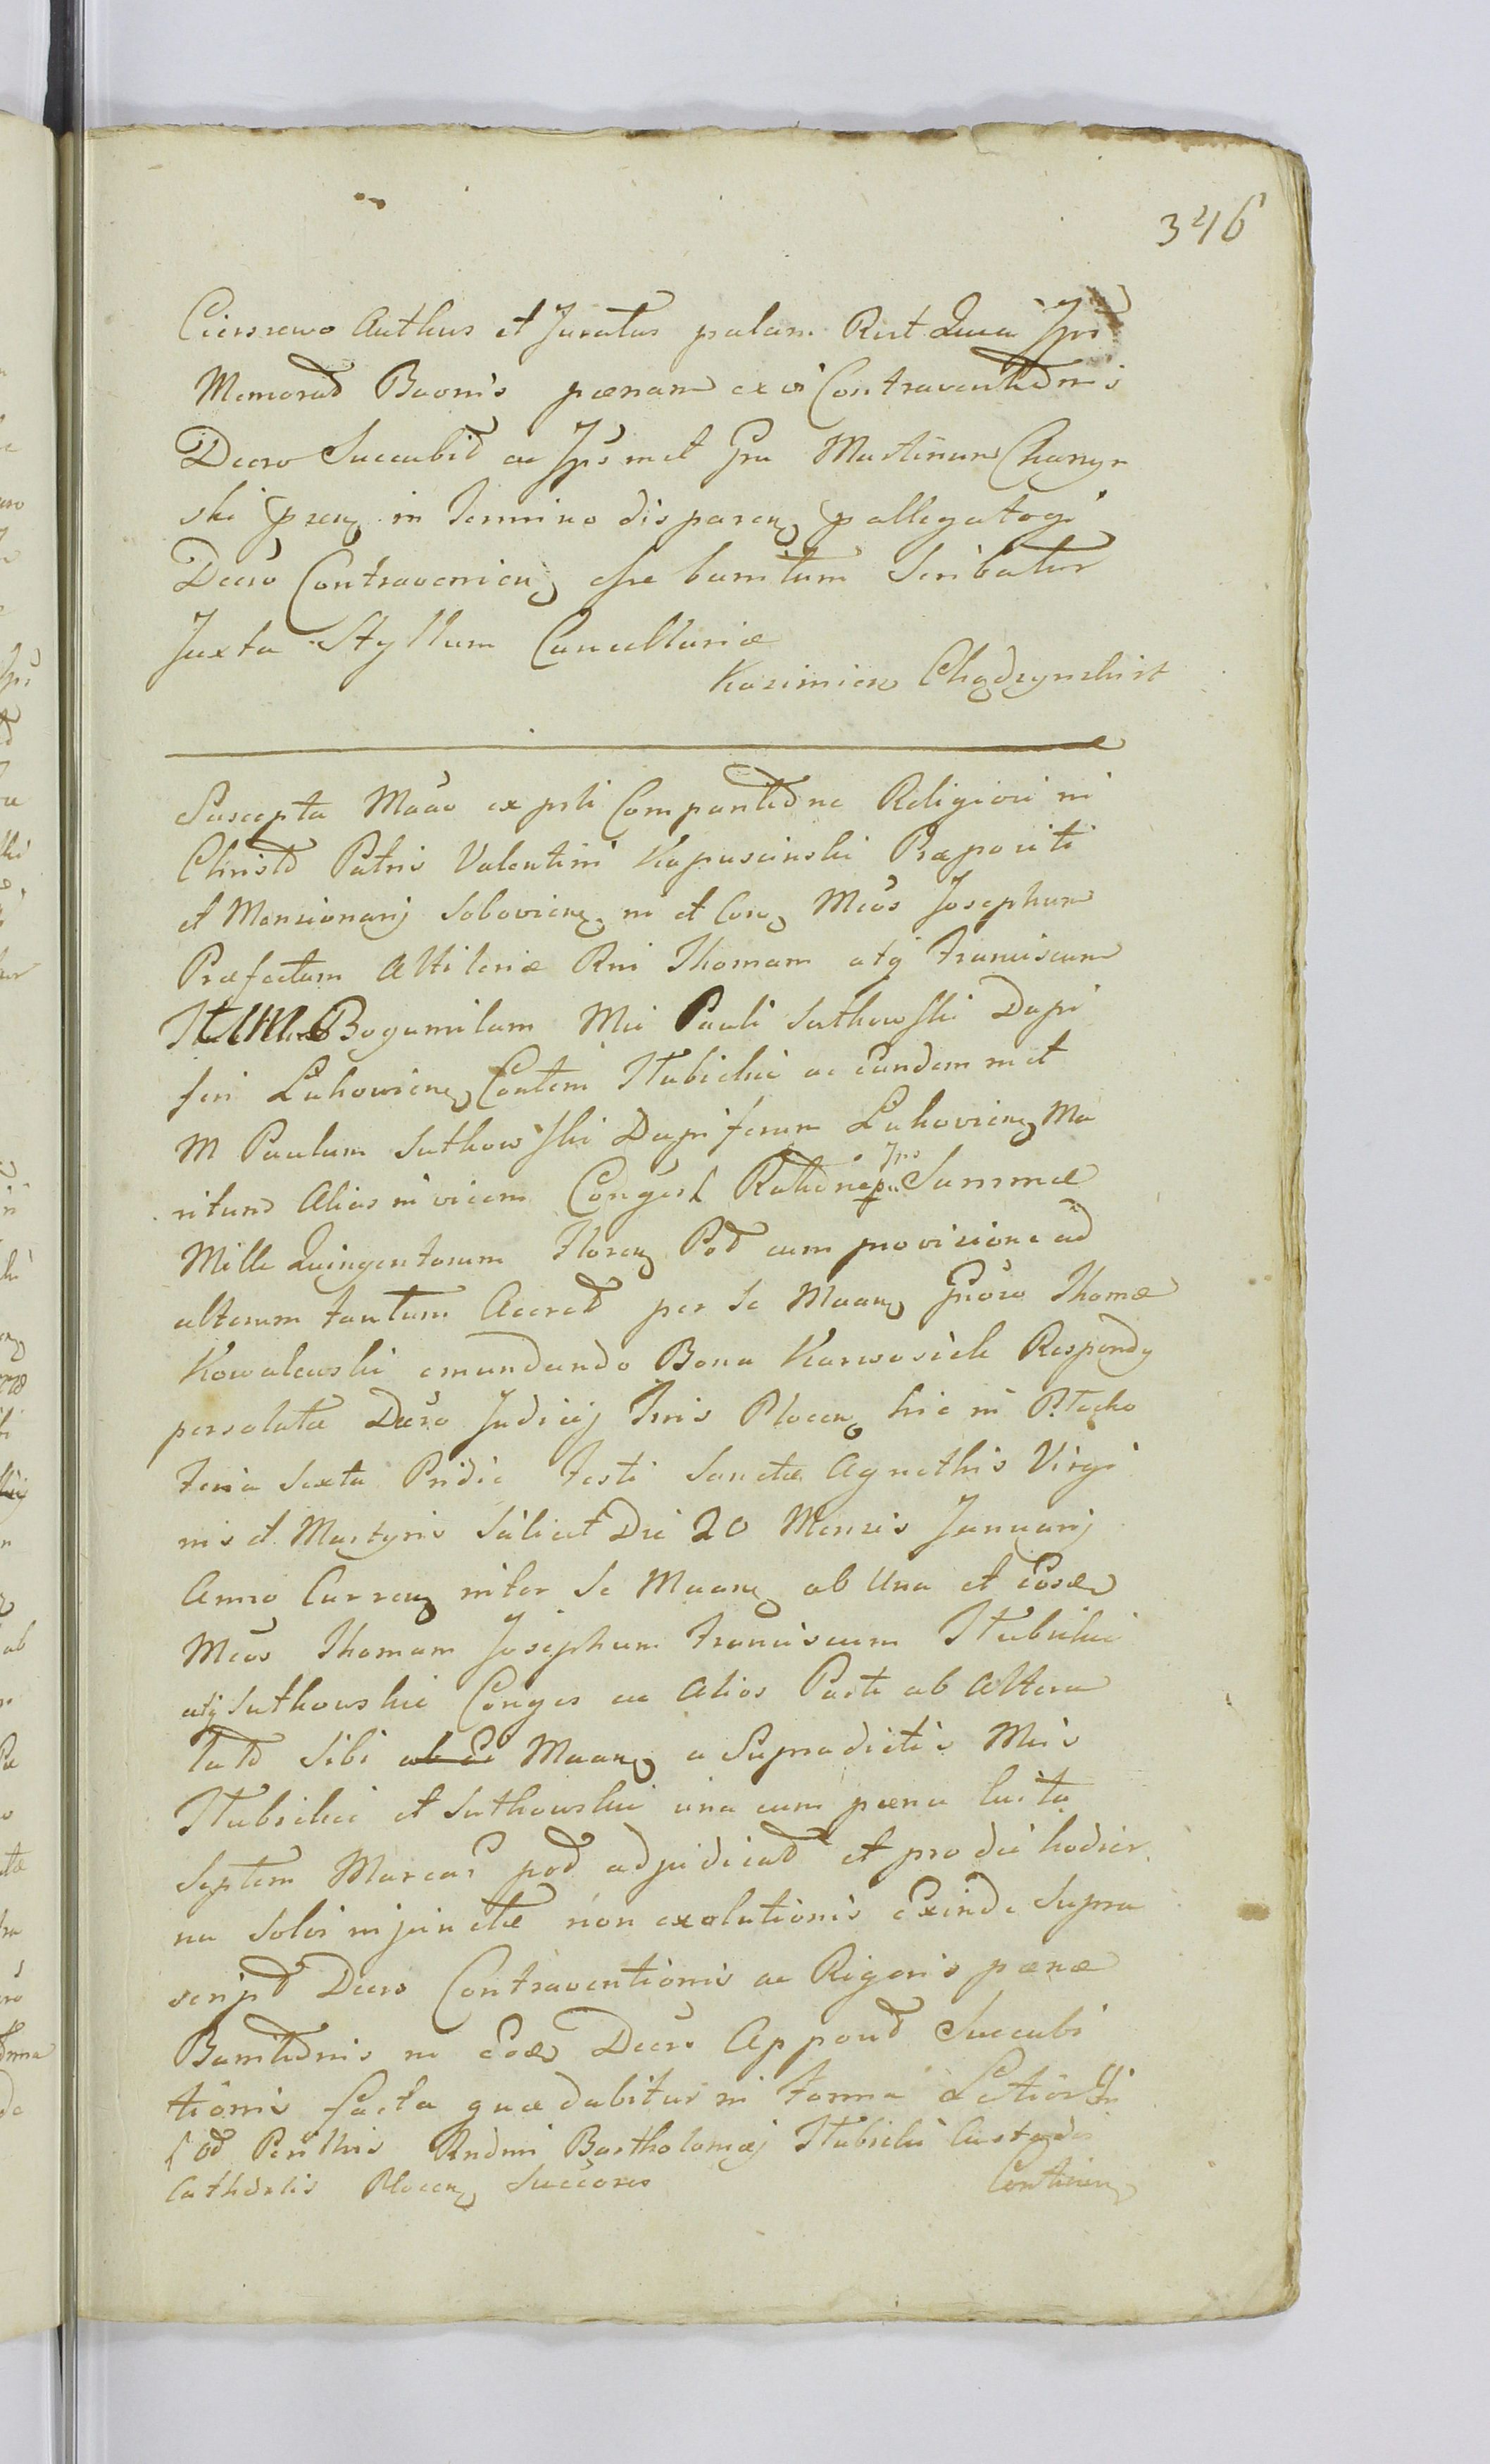 346
Cierszewo Authus et Juratus palam Rut Quia Ips
Memorad Baonis pænam ex vi Contraventionis
Decro Succubit ac Ipsmet Gru Martinum Chamyn
ski pren in Termino disparen pallegatog
Decro Contravenien esse banitum Scribatur
Juxta Styllum Cancellariæ
Kazimierz Chądzynski st
Suscepta Maao ex psti Comparitione Religiosi in
Christo Patris Valentini Kapuscinski Præpositi
et Mansionarij Soboviens, in et Con Mcos Josephum
Præfectum Altileriæ Rni Thomam atq Franciscum
Bogumilam Mci Pauli Suthowski Dapi
feri Lukovien Contem Itubickie ac Eundem met
M Paulum Suthowski Dapiferum Lukovien Ma
ritum Alias in vicem Conges Ratione Ips Summæ
Mille Quingentorum Floren Pol cum provisione ad
alterum tantum Accred per Se Maan Gnoso Thomæ
Kowalewski emundando Bona Karwosieck Respondn
persolutæ Decro Judicij Tris Plocen hic in Płocko
Feria Sexta Pridie Festi Sanctæ Agnethis Virgi
nis et Martyris Scilicet Die 20 Mensis Januarij
Anno Curren inter Se Maan ab Una et Eosd
Mcos Thomam Josephum Franciscum Itubickie
atq Suthowskie Conges ac Alios Parte ab Altera
lato Sibi ab Ei Maan a Supradictis Mcis
Itubickie et Suthowskie una cum pæna luita
Septem Marcas pol adjudicat et pro die hodier
na Solvi injunctæ non exolutionis Exinde Supra
script Decro Contraventionis ac Rigoris pænæ
Banitionis in Eod Decro Apposit Succubi
tionis facta quæ dabitur in Forma
od Perillris Rndmi Bartholomæj Itubicki Custodis
Cathdralis Plocen Succores
Continen